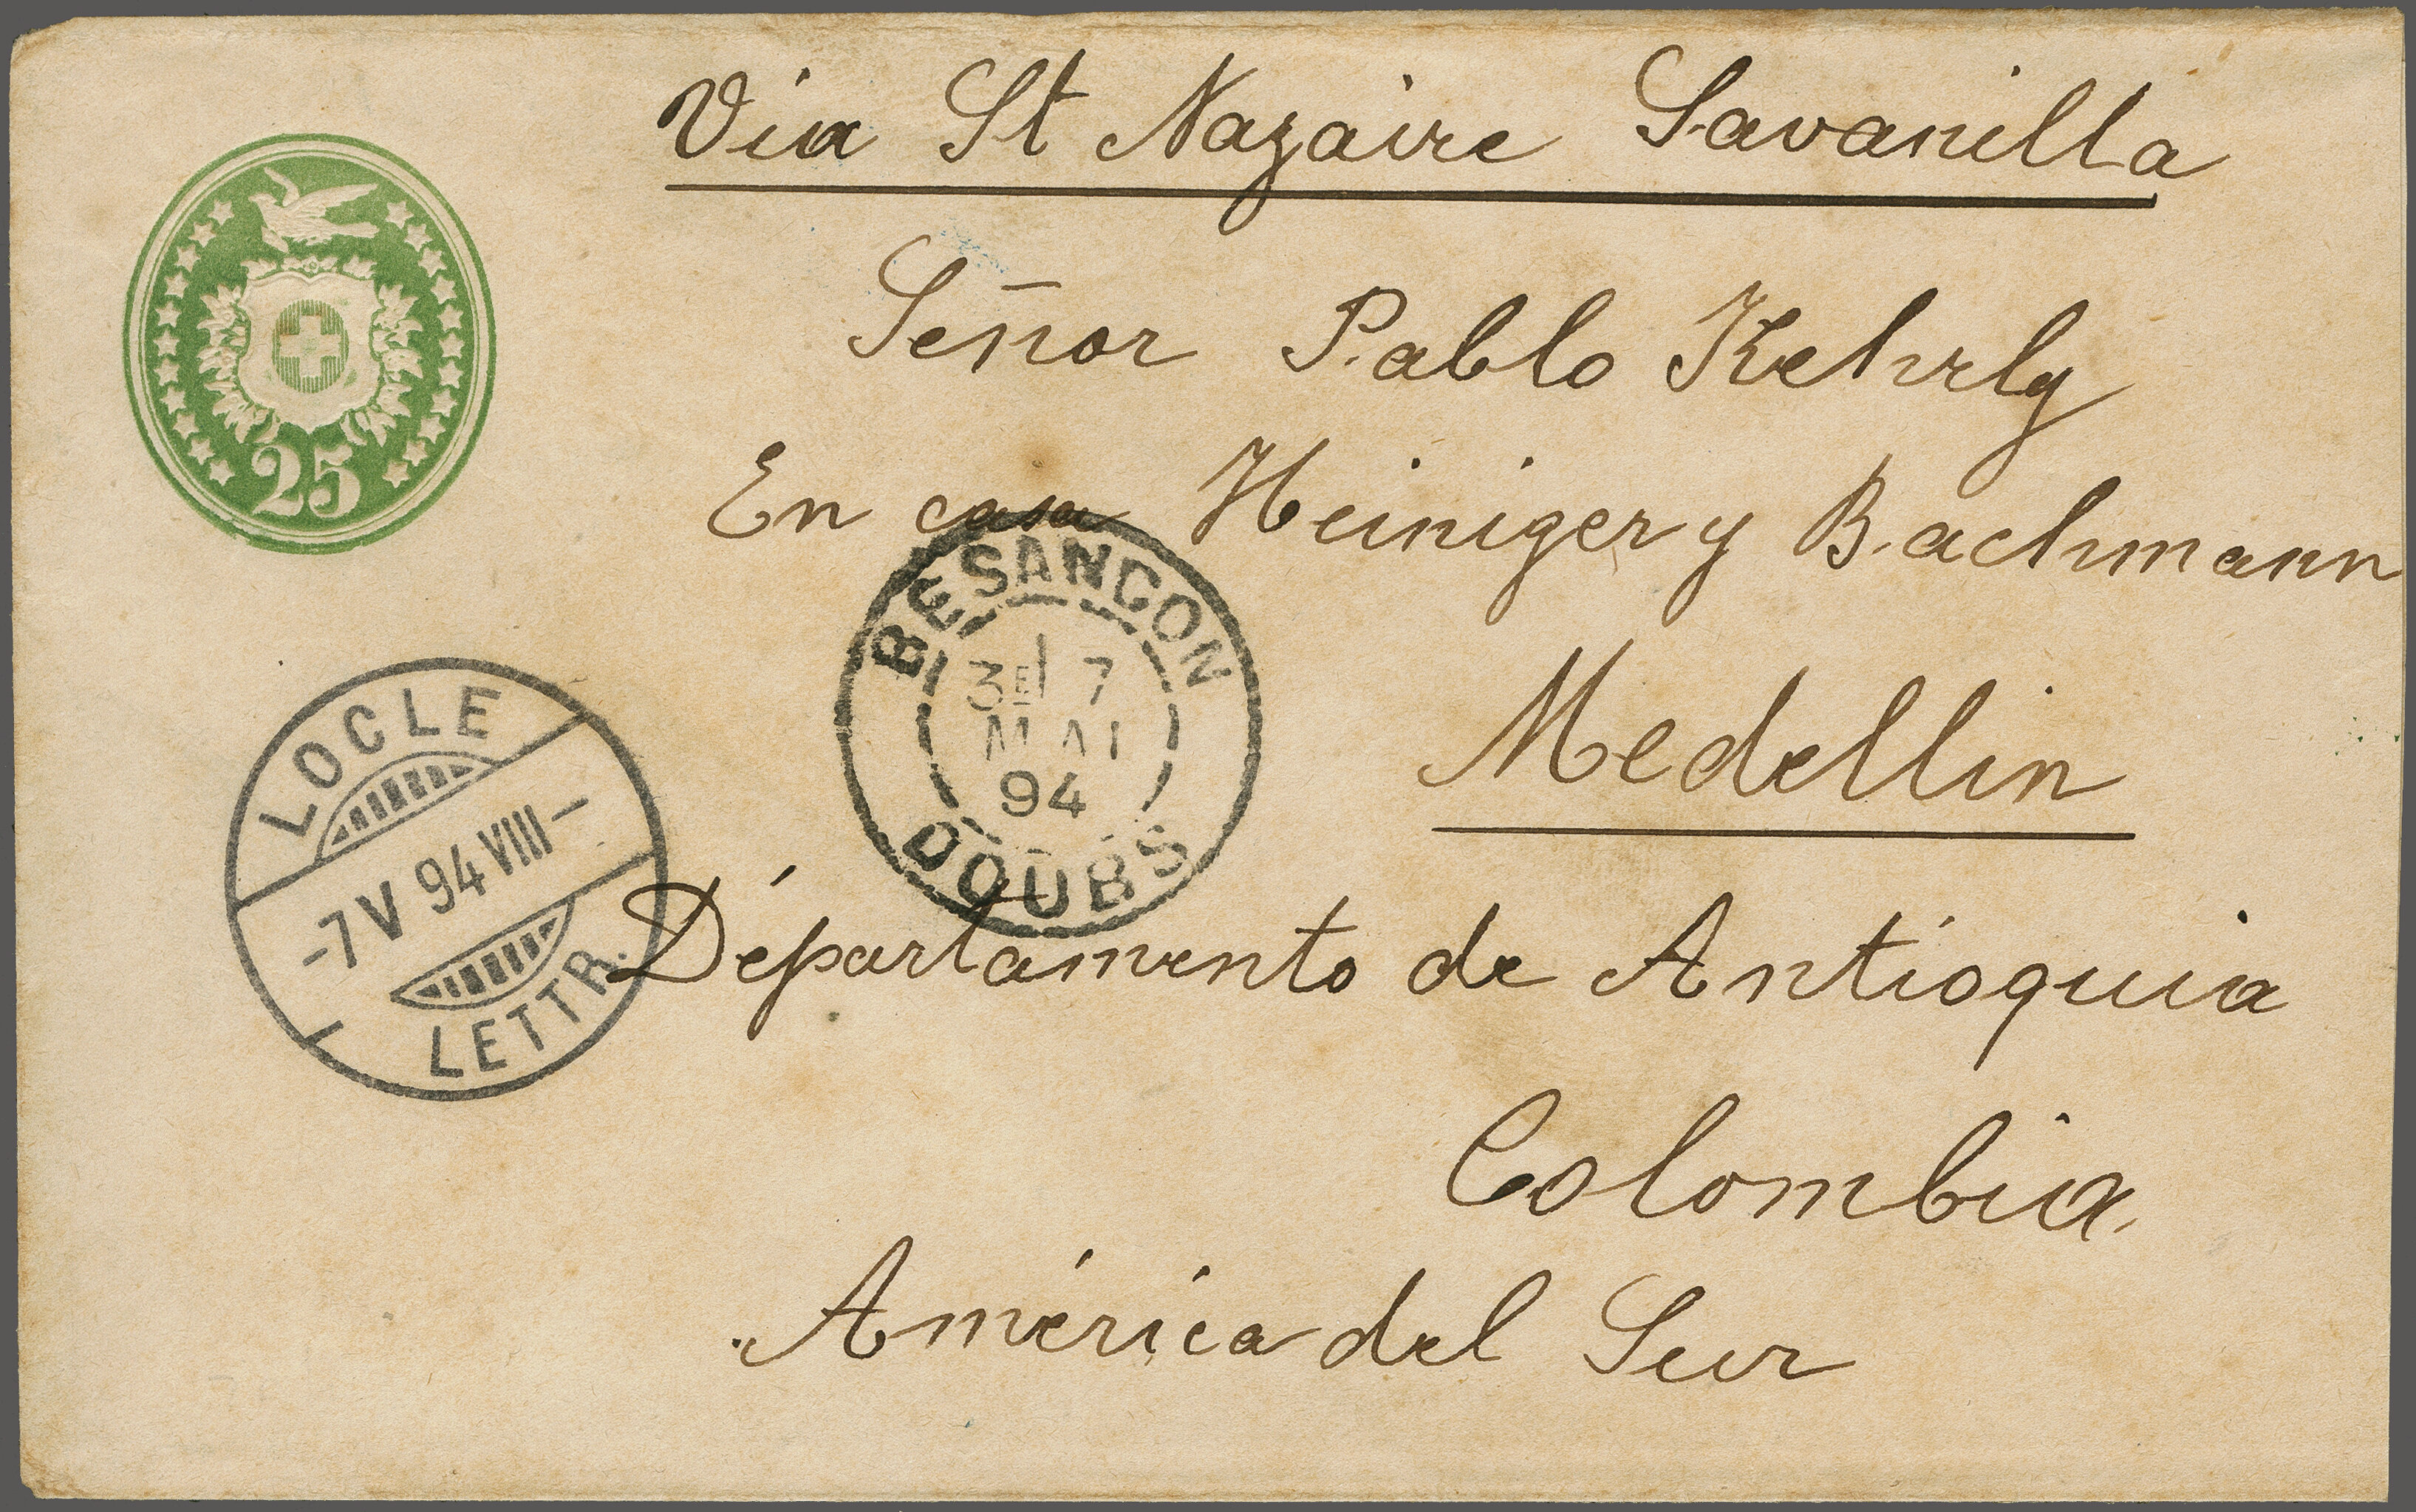 Via St Nazaire Savanilla
Señor Pablo Kehrly
En casa Heiniger y Bachmann
Medellin
Départamento de Antioquia
Colombia
América del Sur
25
BESANCON
3E 7
MAI
94
DOUBS
LOCLE
-7 V 94 VIII-
LETTR.